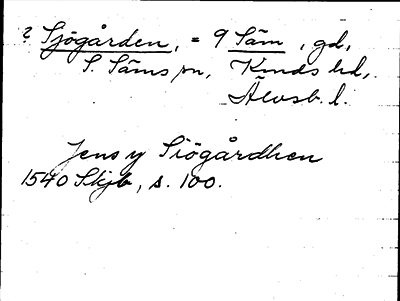 ? Sjögården, = 9 Säm, gd,
S. Säms sn, Kinds hd,
Älvsb. l.
Jens y Siögårdhen
1540 Skjb, s. 100.